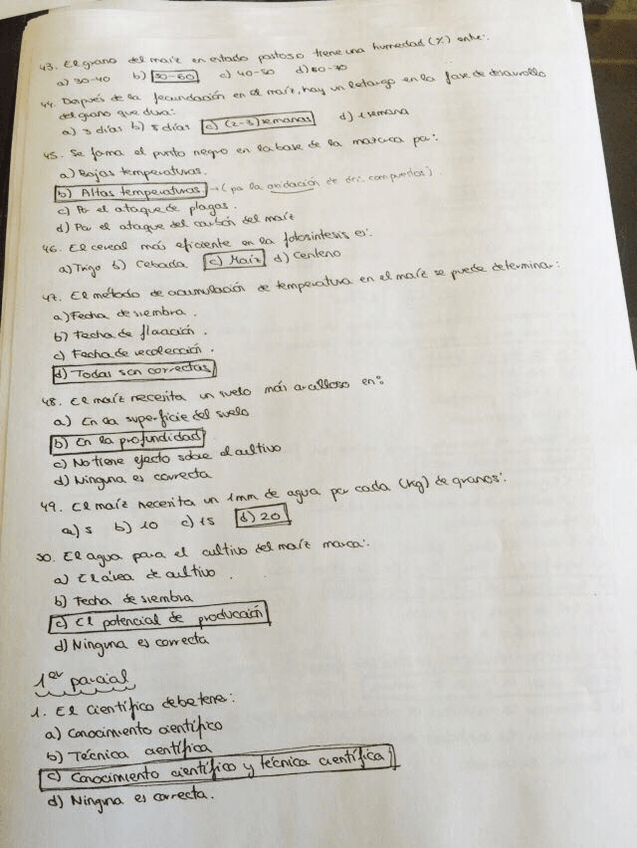 43. El grano del maíz en estado pastoso tiene una humedad (%) entre:
a) 30-40 b) 50-60 c) 40-50 d) 60-70
44. Después de la fecundación en el maíz, hay un letargo en la fase de desarrollo
del grano que dura:
a) 3 días b) 5 días c) (2-3) semanas d) 1 semana
45. Se forma el punto negro en la base de la mazorca por:
a) Bajas temperaturas.
b) Altas temperaturas → (por la oxidación de compuestos).
c) Por el ataque de plagas.
d) Por el ataque del carbón del maíz
46. El cereal más eficiente en la fotosíntesis es:
a) Trigo b) Cebada c) Maíz d) Centeno
47. El método de acumulación de temperatura en el maíz se puede determinar:
a) Fecha de siembra.
b) Fecha de floración.
c) Fecha de recolección.
d) Todas son correctas
48. El maíz necesita un suelo más arcilloso en:
a) En la superficie del suelo
b) En la profundidad
c) No tiene efecto sobre el cultivo
d) Ninguna es correcta
49. El maíz necesita un 1mm de agua por cada (kg) de granos:
a) 5 b) 10 c) 15 d) 20
50. El agua para el cultivo del maíz marca:
a) El área de cultivo.
b) Fecha de siembra
c) El potencial de producción
d) Ninguna es correcta
1er parcial
1. El científico debe tener:
a) Conocimiento científico
b) Técnica científica
c) Conocimiento científico y técnica científica
d) Ninguna es correcta.